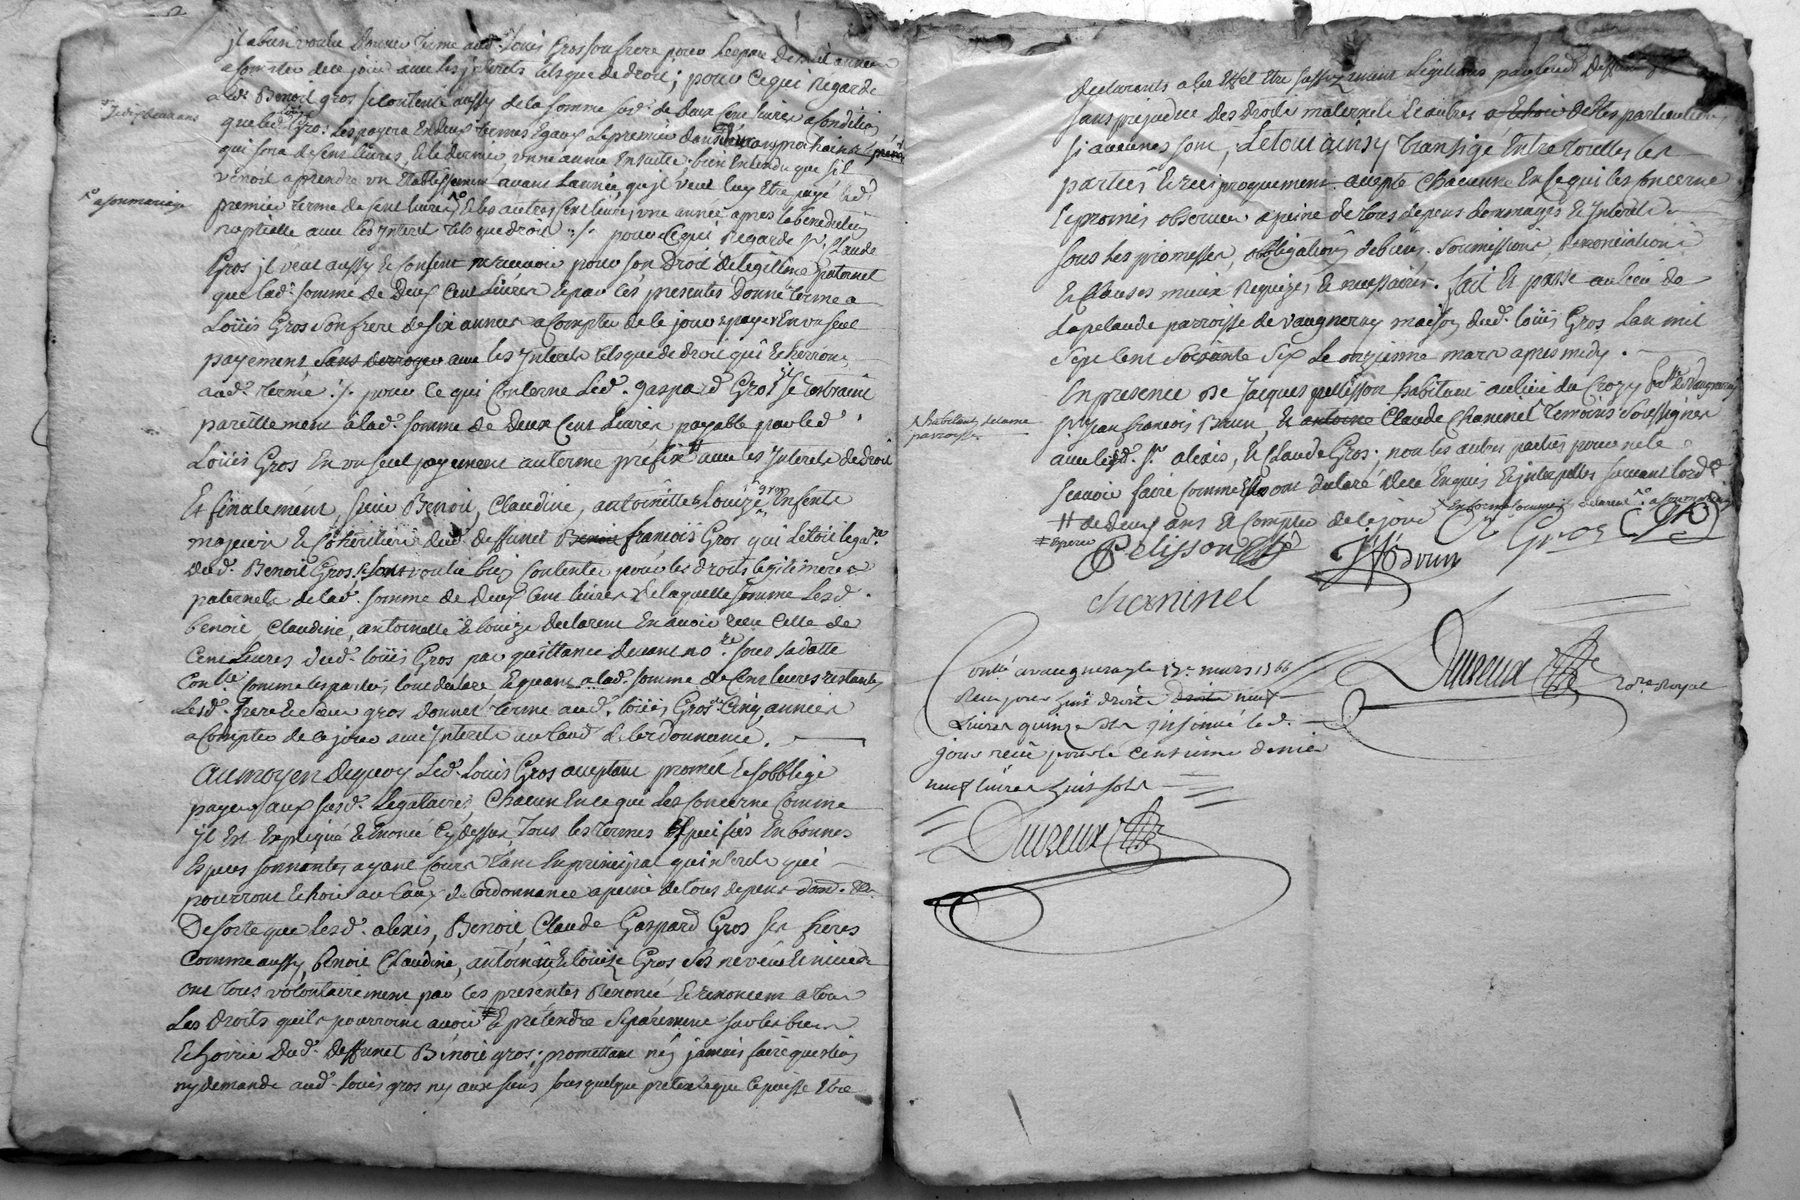 jl a bien voulu donner terme aud. Loüis Gros son frere pour l'espace de huit années
a compter de ce jour avec les jnterets tels que de droit ; pour ce qui regarde
led. Benoit gros se contente aussy de la somme susd. de deux cent livres a condition
que led. Gros les payera en deux termes Egaux le premier dans
qui sera de cent livres, et le dernier une année Ensuitte, bien entendu que s'il
venoit a prendre un Etablissement avant l'année qu'jl veut luy etre payé led.
premier terme de cent livres et les autres cent livres une année apres la benediction
nuptialle avec les jnterets tels que droit ./. pour ce qui regarde Sr. Claude
Gros jl veut aussy et consent recevoir pour son droit de legitime paternel
que lad. somme de deux cent livres et par ces presentes donne terme a
Loüis Gros son frere de six années a compter de ce jour a payer en un seul
payement sans deroger avec les jnterets tels que de droit qui Echerront
aud. terme ./. pour ce qui concerne led. Gaspard Gros jl se contraint
pareillement à lad. somme de deux cent livres payable par led.
Loüis Gros en un seul payement au terme préfix # avec les jnterets de droit
Et finalement, Sieur Benoit, Claudine, antoinette & Louize gros Enfents
majeurs & Cohéritiers dud. deffunct Benoit françois Gros qui Etoit legat.re
dud. Benoit Gros, se sont voulu bien contenter pour les droits legitimeres
paternels de lad. somme de deux cent livres de laquelle somme lesd.
benoit, Claudine, antoinette & louize declarent En avoir reçu celle de
Cent livres dud. loüis Gros par quittance devant no.re sous sa datte
Contlée comme les parties l'ont declaré Et quant a lad. somme de cent livres restantes
lesd. frere et sœurs gros donnent terme aud. loüis Gros Cinq années
a compter de ce jour avec jnterets au taux de l'ordonnance.
Au moyen dequoy led. Louis Gros acceptant promet & s'obblige
payer aux susd. Legataires Chacun en ce qui les concerne comme
jl est Expliqué & Enoncé Cy dessus, tous les termes Specifiés En bonnes
Espèces sonnantes ayant cours tant En principal qu'jnterets qui
pourront Echoir au taux de l'ordonnance a peine de tous depens dom. &a.
De sorte que lesd. alexis, Benoit, Claude Gaspard Gros ses freres
comme aussy, benoit Claudine, antoinette & loüise Gros ses neveu et nieces
ont tous volontairement par ces presentes Renoncé & renoncent a tous
les droits qu'ils pourroint avoir # & prétendre Séparement sur les biens
& hoirie dud. deffunct Bénoit gros ; promettant n'en jamais faire question
ny demande aud. Louis gros ny aux siens, sous quelque pretexte que ce puisse etre
a son mariage
declarants a cet Effet Etre suffisamment Légitimés par led. deffunct
sans prejudice des droits maternels & autres a Echoir desttes particuliers
si aucunes sont, Le tout ainsy transigé Entre toutes les
parties & reciproquement accepté Chacunne En ce qui les concerne
& promis observer a peine de tous depens dommages & jnterets
sous les promesses, obbligations de biens, soumissions, Renonciations
& Clauses mieux requizes & necessaires. fait & passé au lieu de
Lapelaude parroisse de vaugneray maison dud. loüis Gros L'an mil
sept cent soixante six Le onzieme mars apres midy.
En presence de jacques pellisson habitant au lieu du Crozy
Sr. jean françois Brun, & antoine Claude Chaninel temoins soussignés
habitants de lame
parroisse
avec lesd. Sr. alexis, & Claude Gros, non les autres parties pour ne le
sçavoir faire comme Elles ont declaré de ce Enquis & interpellés suivant l'ord.ce
# de deux ans & Compter de ce jour
# esperer
Pelisson
JF Brun
A Gros C gro
chaninel
Contlé a vaugneray le 17e. mars 1766
Reçu pour huit droits droits neuf
Livres quinze sols jnsinué led.
jour reçu pour le centieme denier
neuf livres huit sols
Dureux
Dureux
no.re Royal